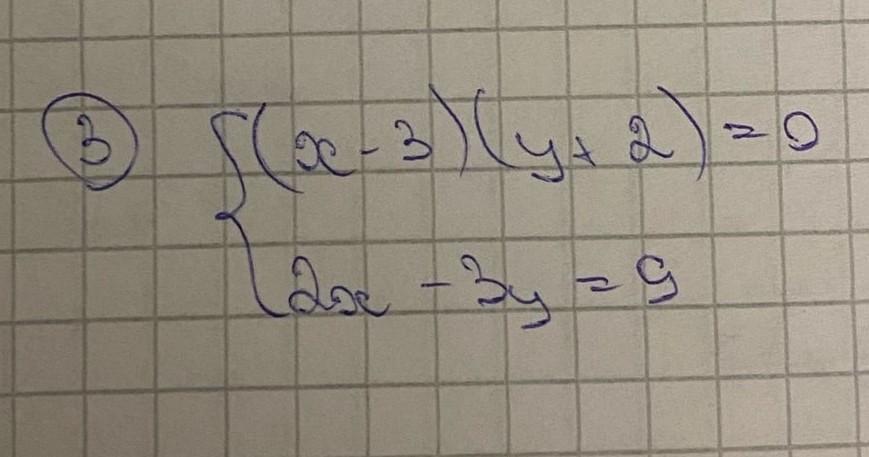 ③ (x-3)(y+2)=0
2x-3y=9